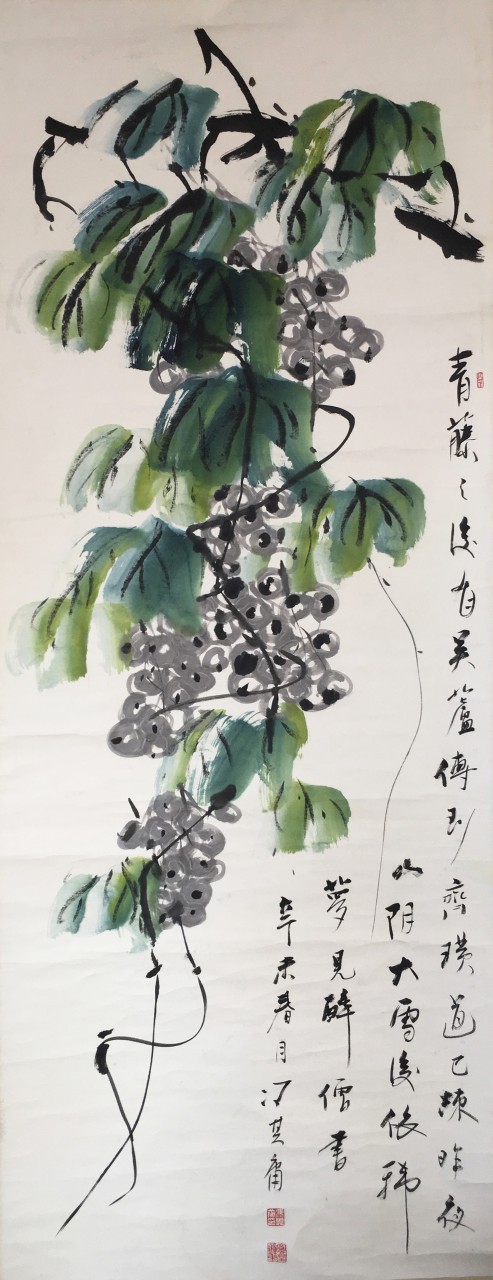 青藤之後有吴蘆傳到齊璜道已疎昨夜
山阴大雪後依稀
夢見醉僧書
辛未春月冯其庸